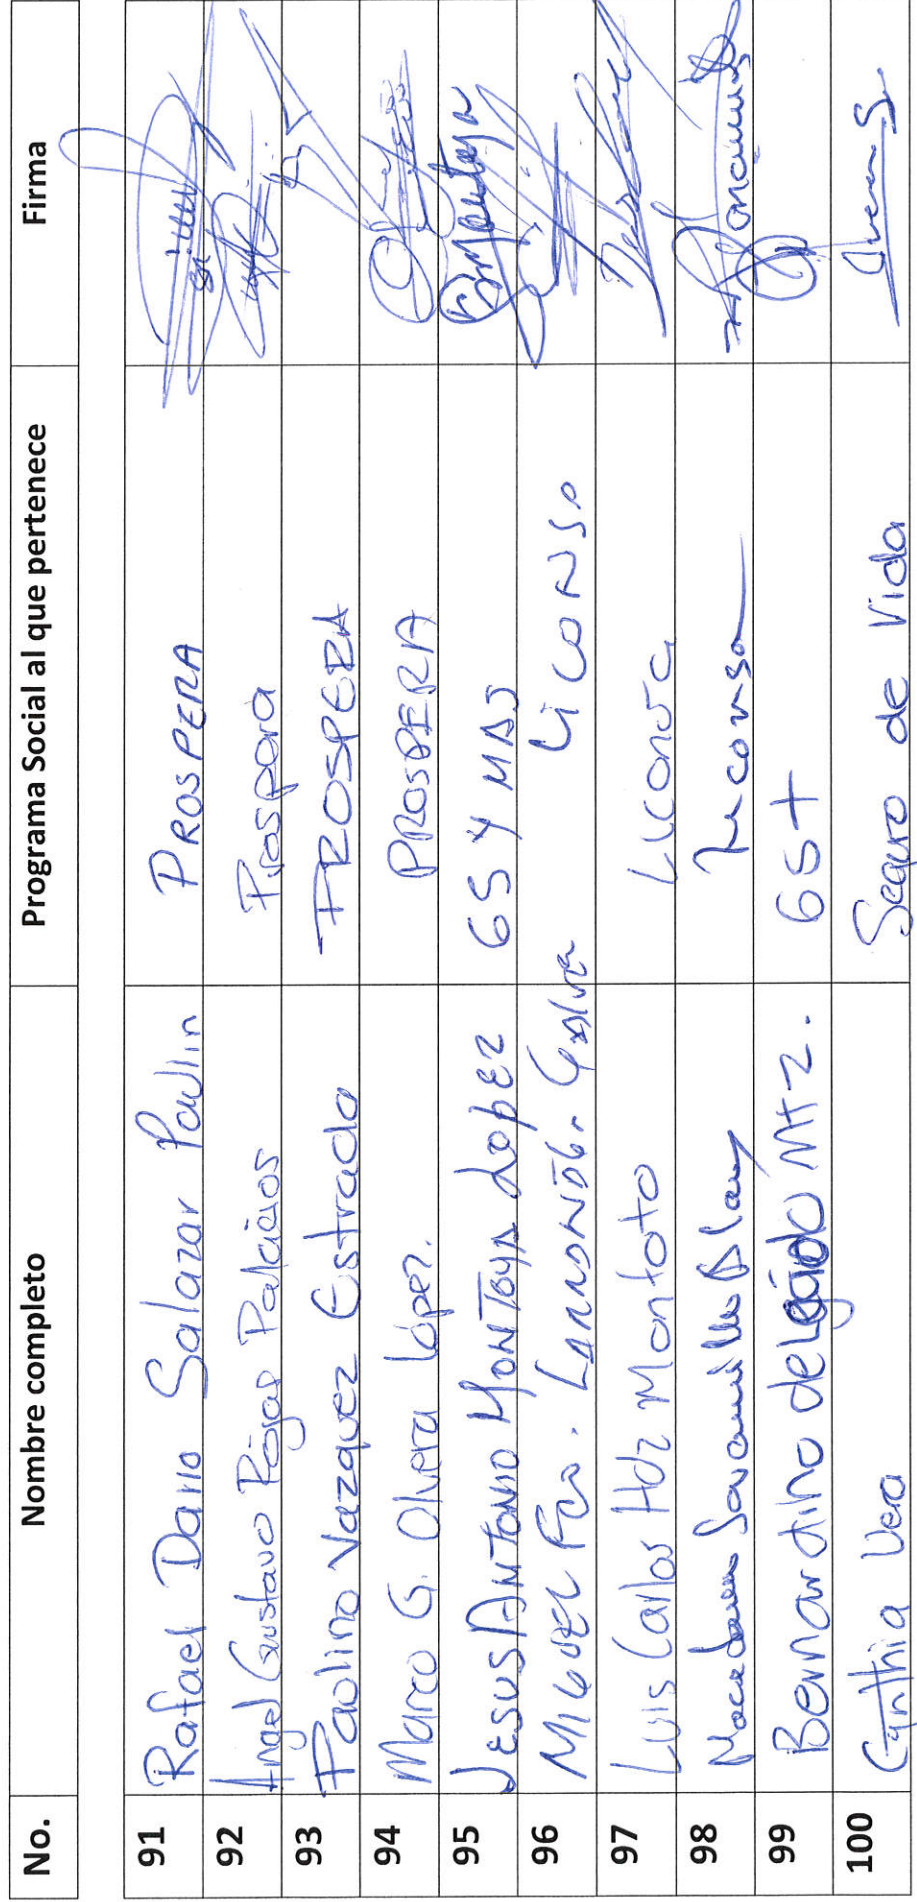 No. Nombre completo Programa Social al que pertenece Firma
91 Rafael Dario Salazar Paulin PROSPERA
92 Angel Gustavo Rojas Palacios Prospera
93 Paulino Vazquez Estrada PROSPERA
94 Marco G. Olvera López. PROSPERA
95 JESUS ANTONIO MONTOYA LOPEZ 65 Y MAS Montoya
96 MIGUEL Fco. LARRONDO LICONSA
97 Luis Carlos Hdz Montoto Liconsa
98 Liconsa
99 Bernardino delgado Mtz. 65+
100 Cynthia Vera Seguro de Vida